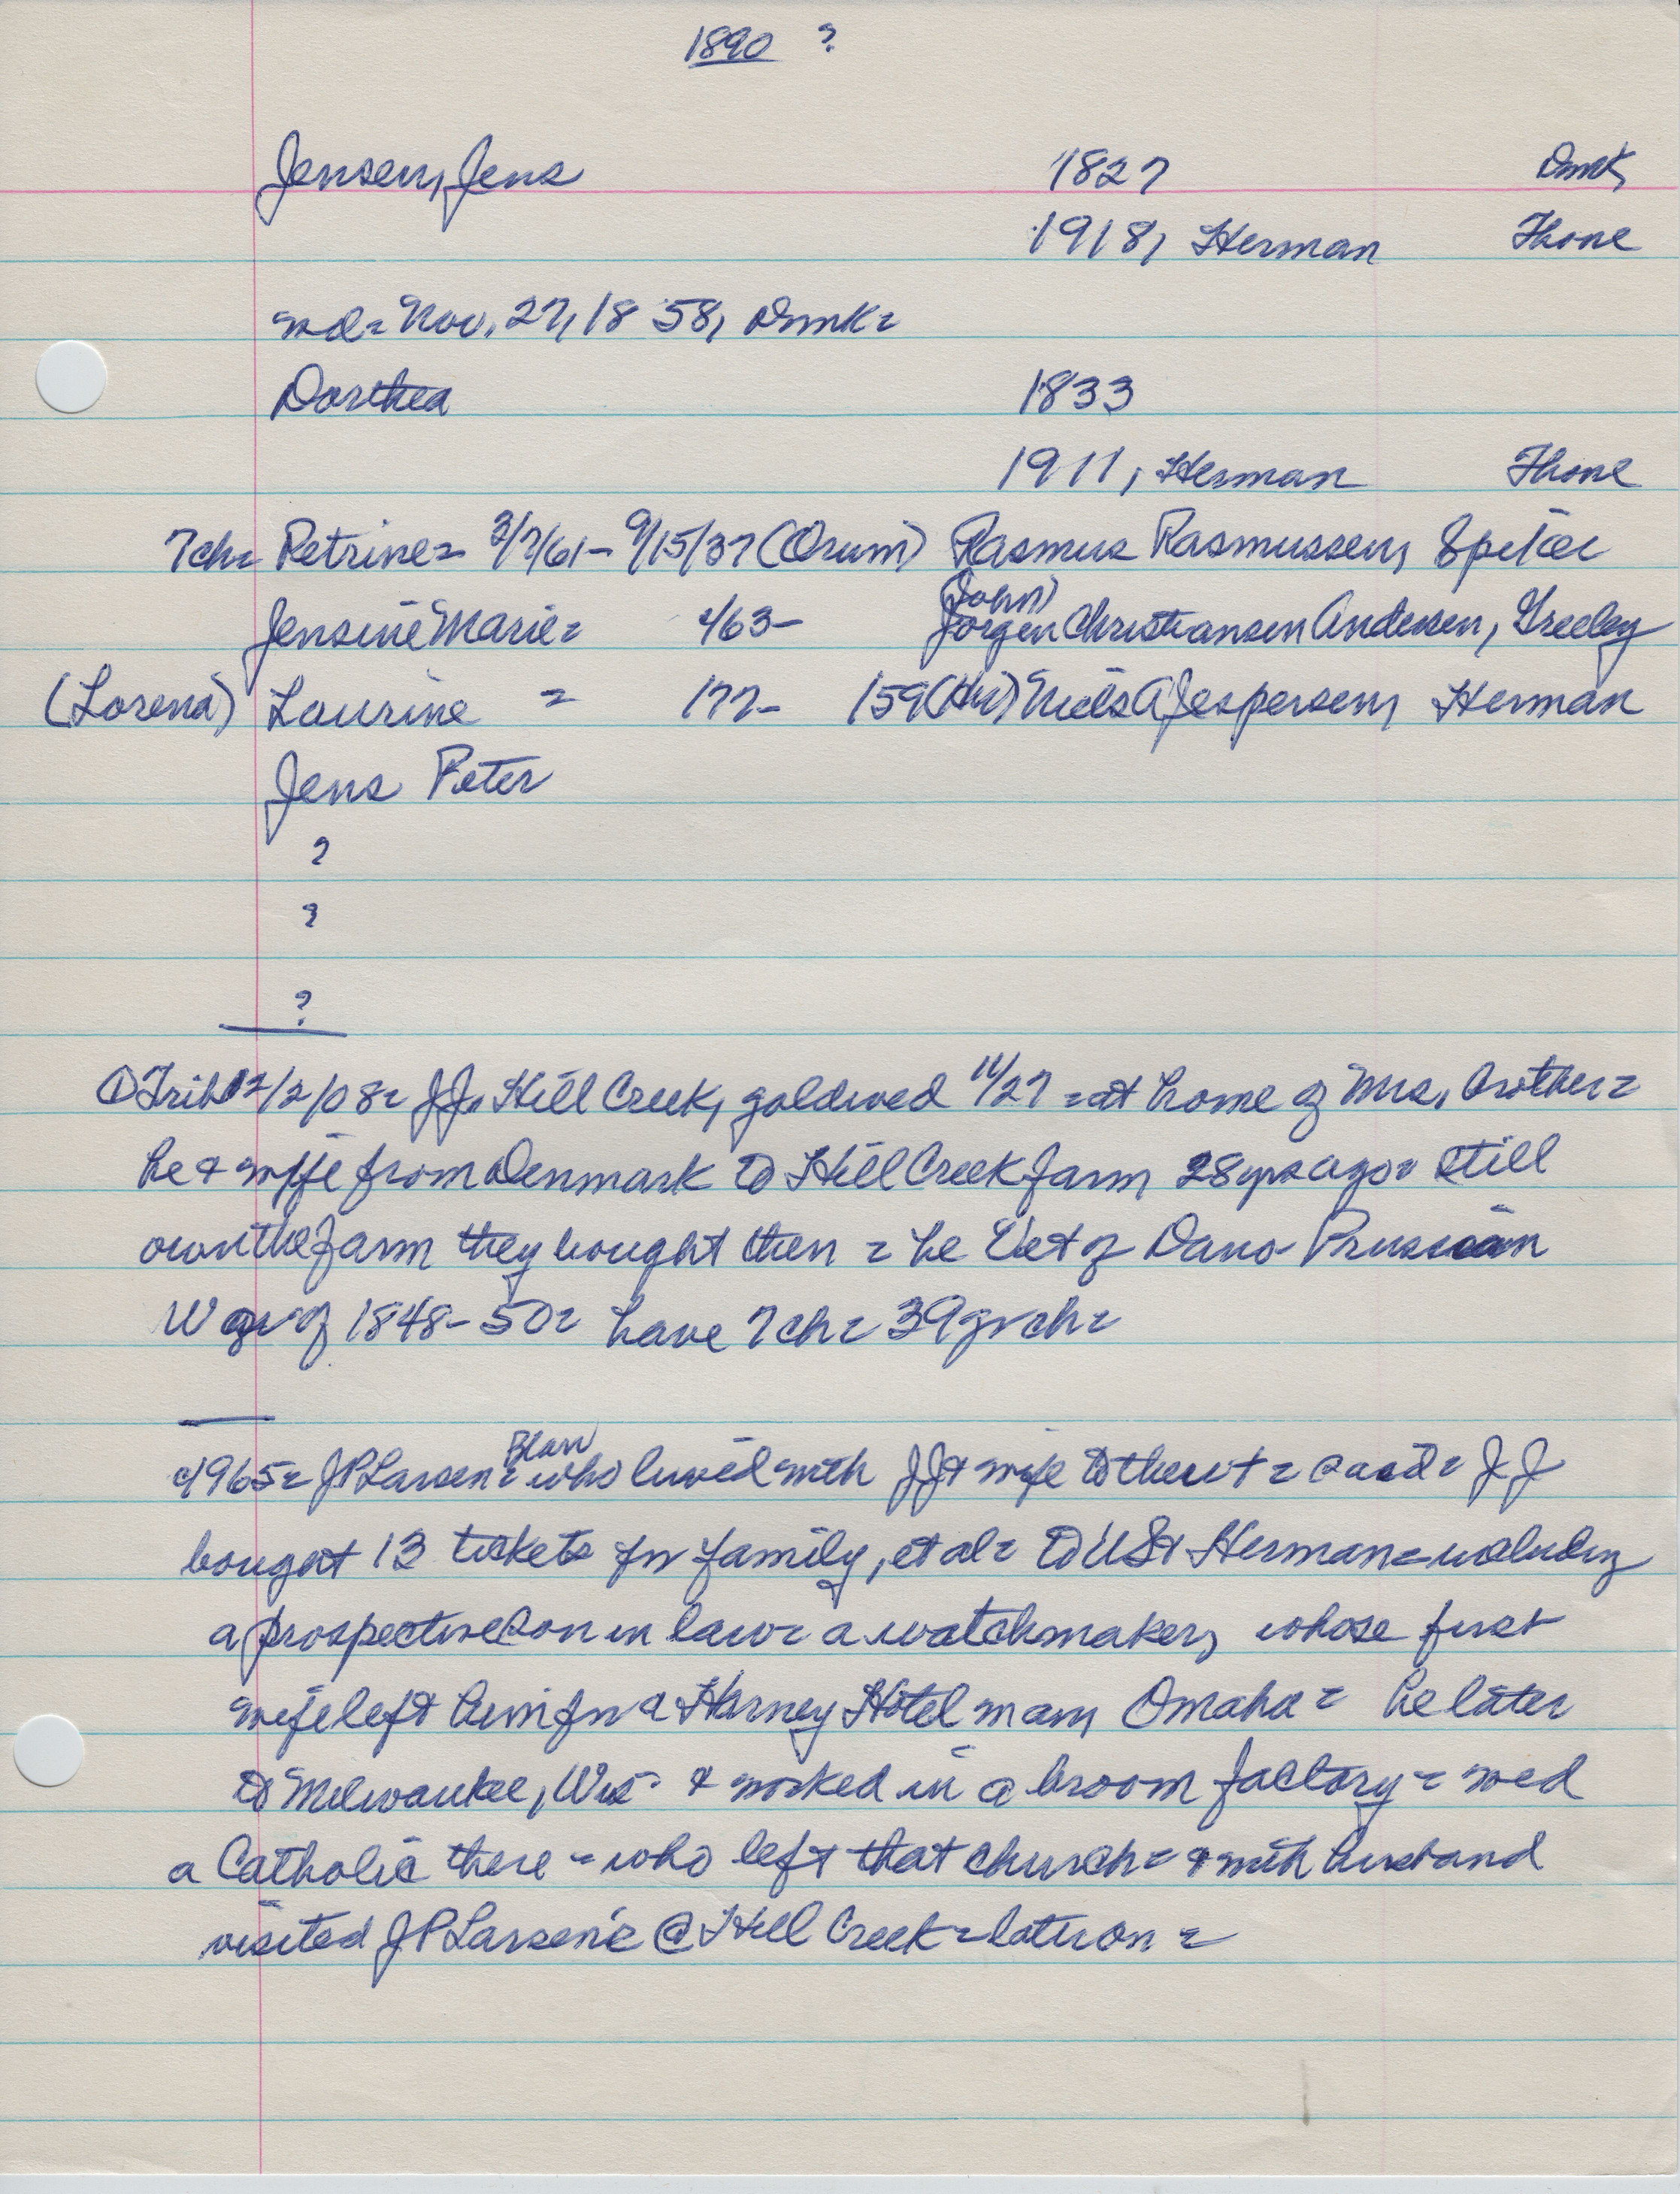 1890 ?
Jensen, Jens 1827 Dmk,
1918, Herman Thone
md= Nov. 27, 1858, Dnmk=
Dorthea 1833
1911, Herman Thone
7ch= Petrine= 3/7/61- 9/15/37 (Orum) Rasmus Rasmussen, Spiker
(John)
Jensine Marie= 2/63- Jorgen Christiansen Andersen, Greeley
(Lorena) Laurine = 177- 159 (Hn) Niels A Jespersen, Herman
Jens Peter
?
?
?
① Trib 12/2/08= JJ, Hill Creek, goldwed 11/27 = at home of Mrs. brother=
he & wife from Denmark to Hill Creek farm 28 yrs ago= still
own the farm they bought then = he Vet of Dano-Prussian
War of 1848-50= have 7ch= 39 grch=
Blair
1965= JP Larsen= who lived with JJ & wife to their + = said= JJ
bought 13 tickets for family, et al= to US & Herman= including
a prospective son in law= a watchmaker, whose first
wife left him for a Harney Hotel man, Omaha= he later
to Milwaukee, Wis- & worked in a broom factory= med
a Catholic there - who left that church= & with husband
visited JP Larsen's @ Hill Creek= later on=